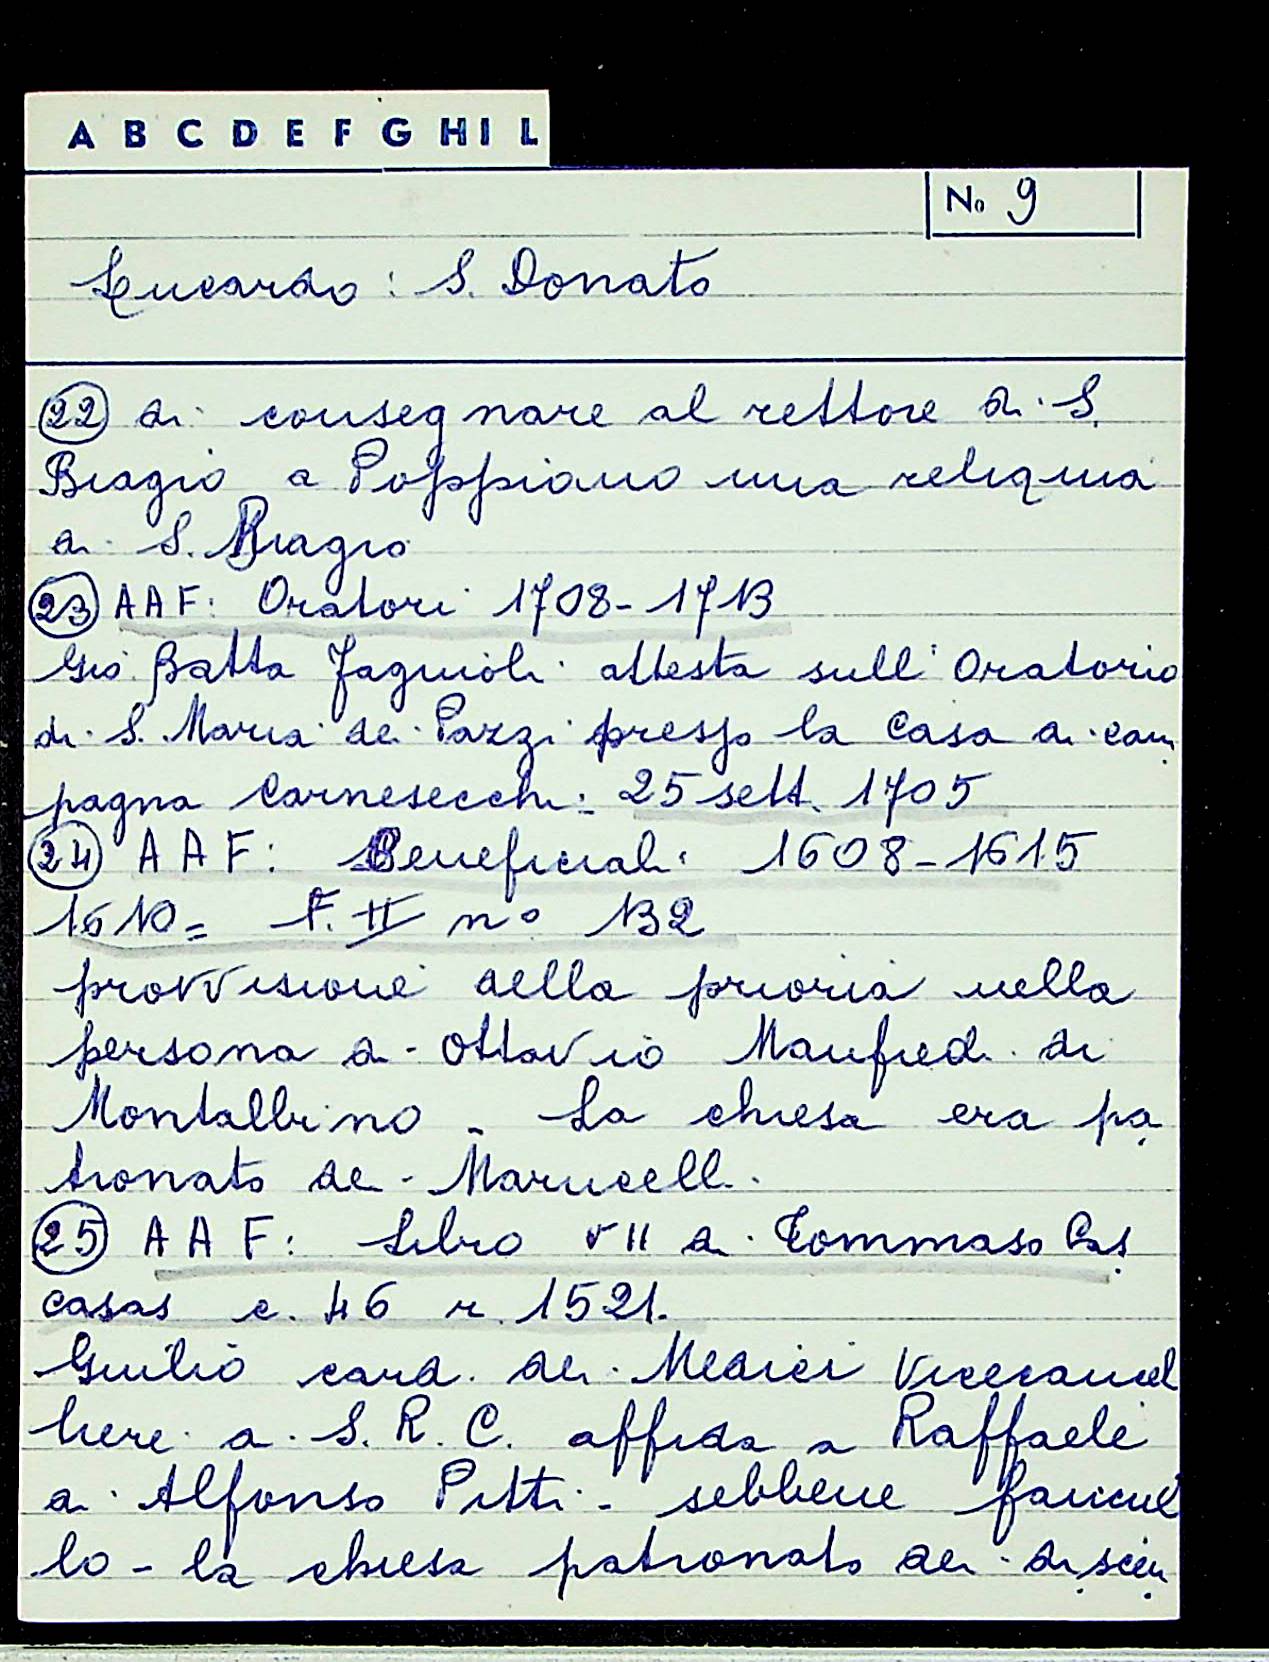 A B C D E F G H I L
No 9
Lucardo: S. Donato
22 di consegnare al rettore di S.
Biagio a Poppiano una reliquia
di S. Biagio
23 AAF: Oratori 1708-1713
Gio Batta Fagiuoli attesta sull'Oratorio
di S. Maria dei Pazzi presso la casa di cam
pagna Carnesecchi: 25 sett. 1705
24 AAF: Beneficiali 1608-1615
1610= F. II n° 132
provvisione della prioria nella
persona di Ottavio Manfredi di
Montalbino - La chiesa era pa
tronato dei Marucelli.
25 AAF: Libro VII di Tommaso Las
casas c. 46 r. 1521.
Giulio card. dei Medici Vicecancel
liere di S. R. C. affida a Raffaele
di Alfonso Pitti - sebbene fanciul
lo - la chiesa patronato dei discen